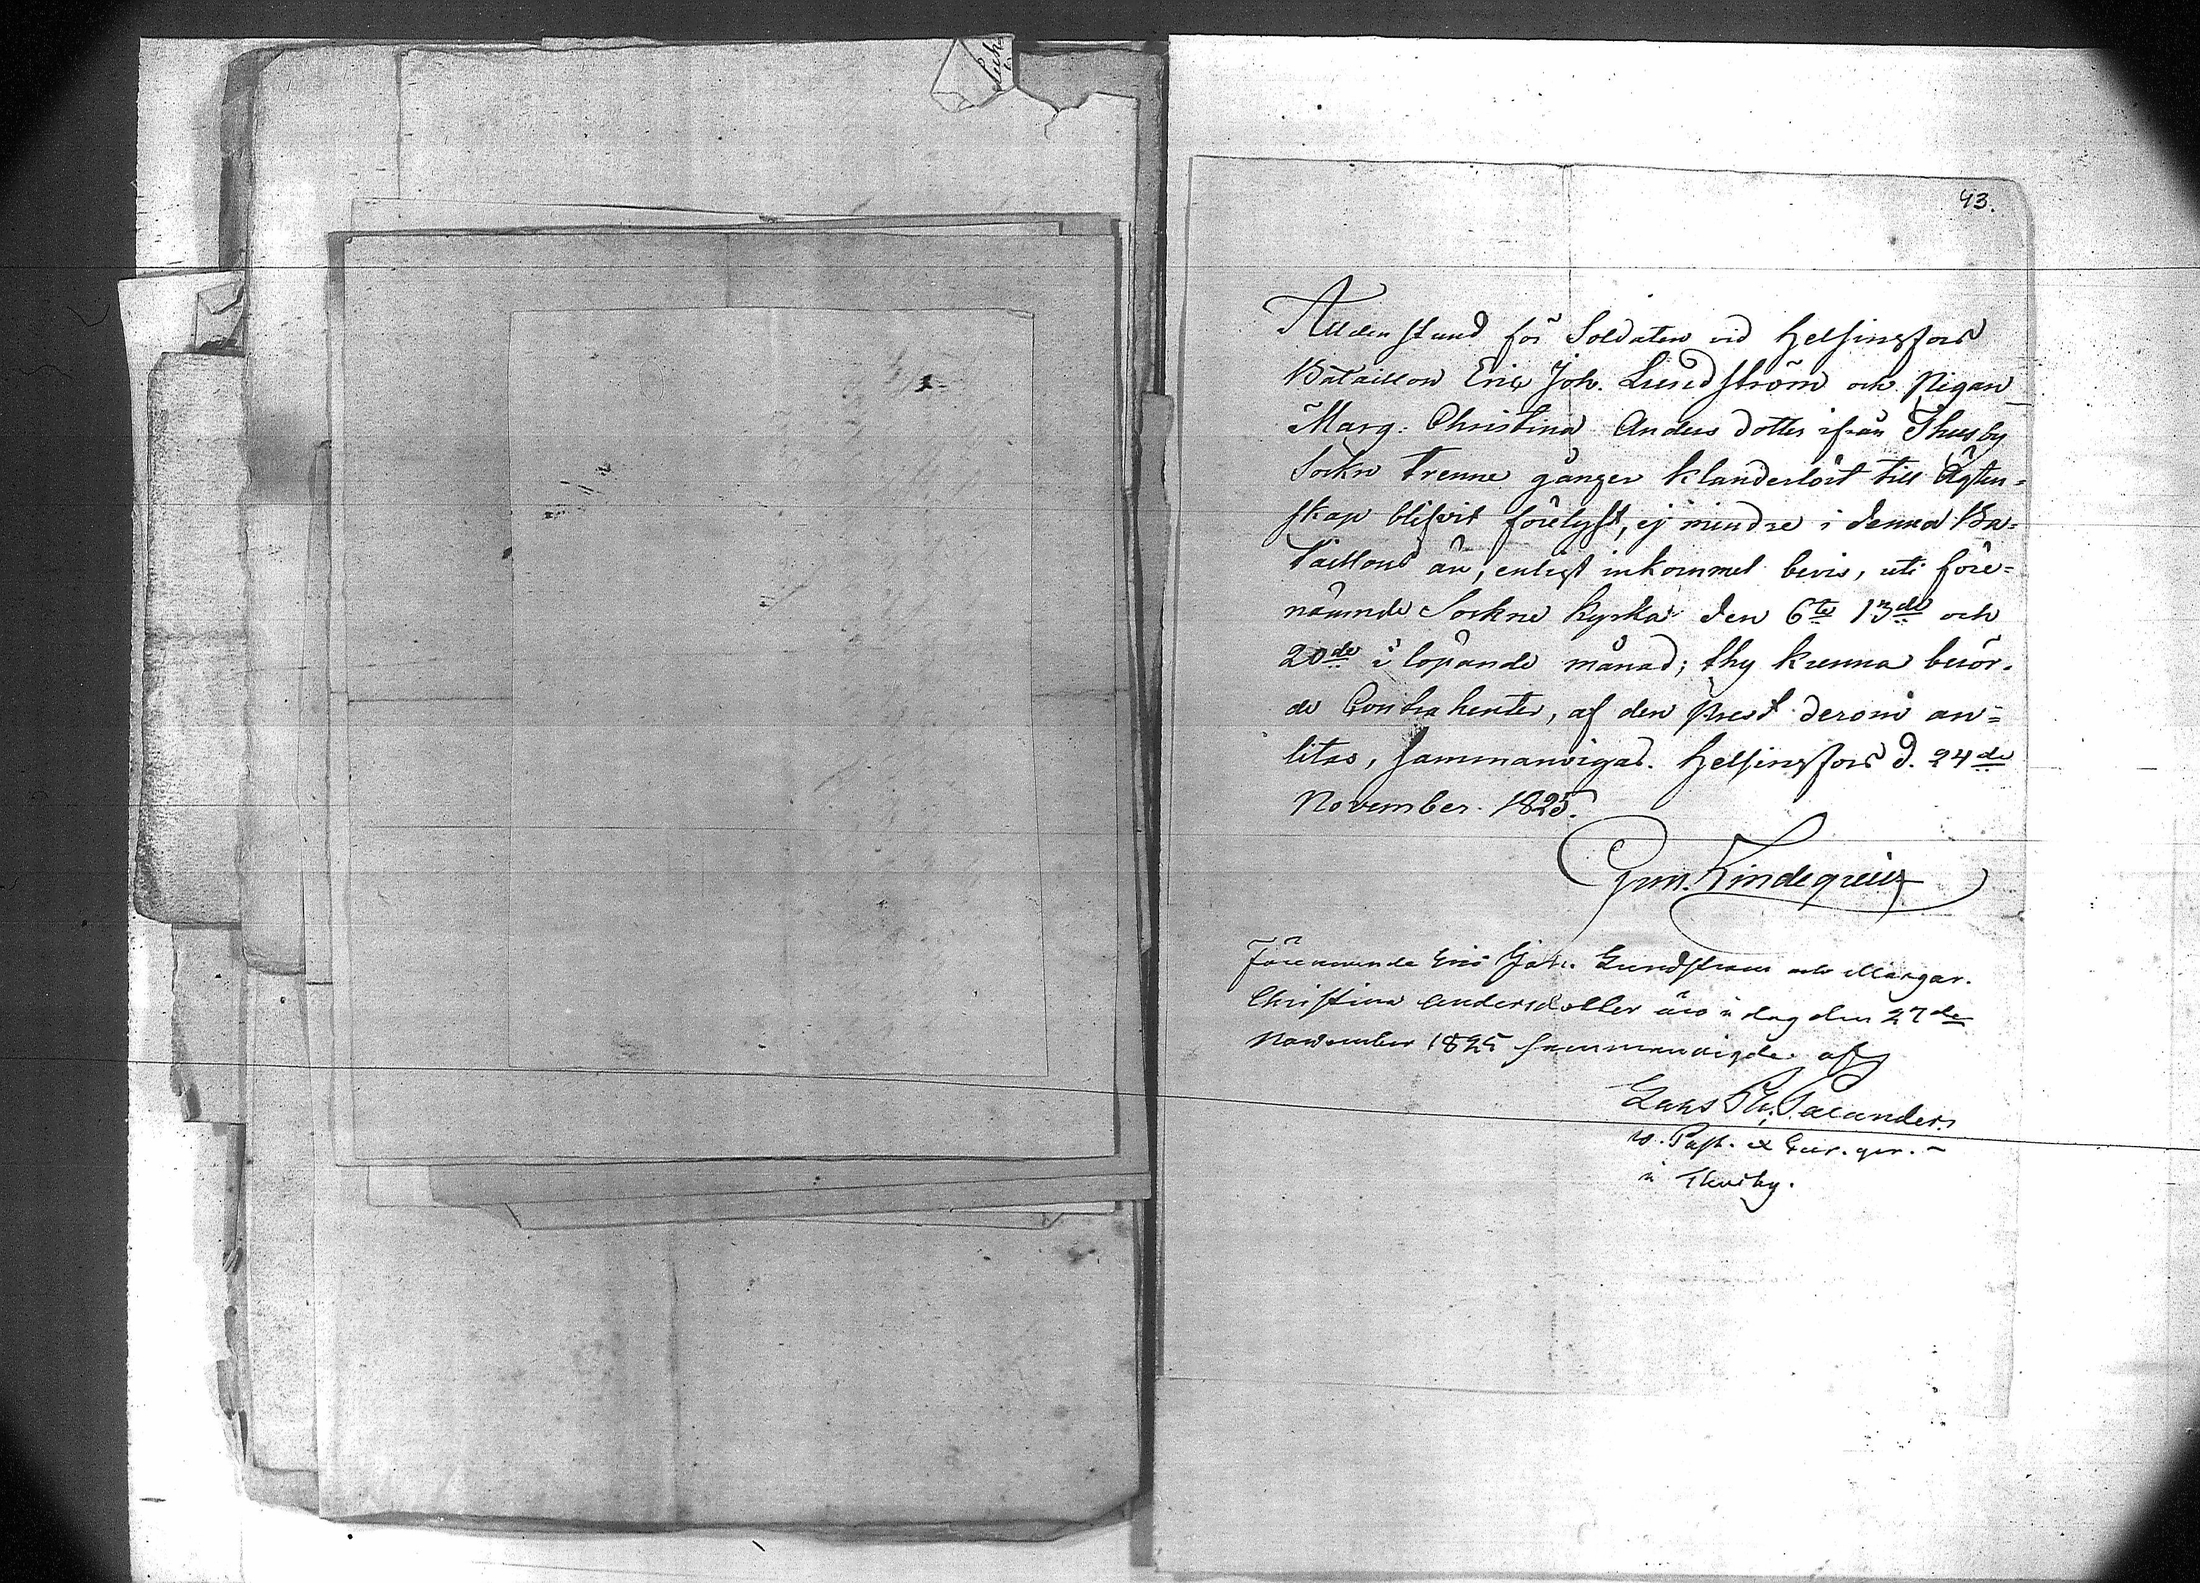 43.
Alldenstund för Soldaten vid Helsingfors
Bataillon Eric Joh. Lundström och Pigan
Marg. Christina Anders dotter ifrån Thusby
Sockn trenne gånger klanderlöst till Ägten=
skap blifvit förelyst, ej mindre i denna Ba=
taillons än, enligt inkommet bevis, uti före=
nämnde Sockne Kyrka den 6te 13de och
20de i löpande månad; thy kunna berör.
de Contrahenter, af den Prest derom an=
litas, sammanvigas. Helsingfors d. 24de
November 1825.
Förenämnde Eric Joh. Lundström och Margar.
Christina Andersdotter äro i dag den 27de
November 1825 sammanvigde af
Lars Palander.
v. Past. &
i Thusby.